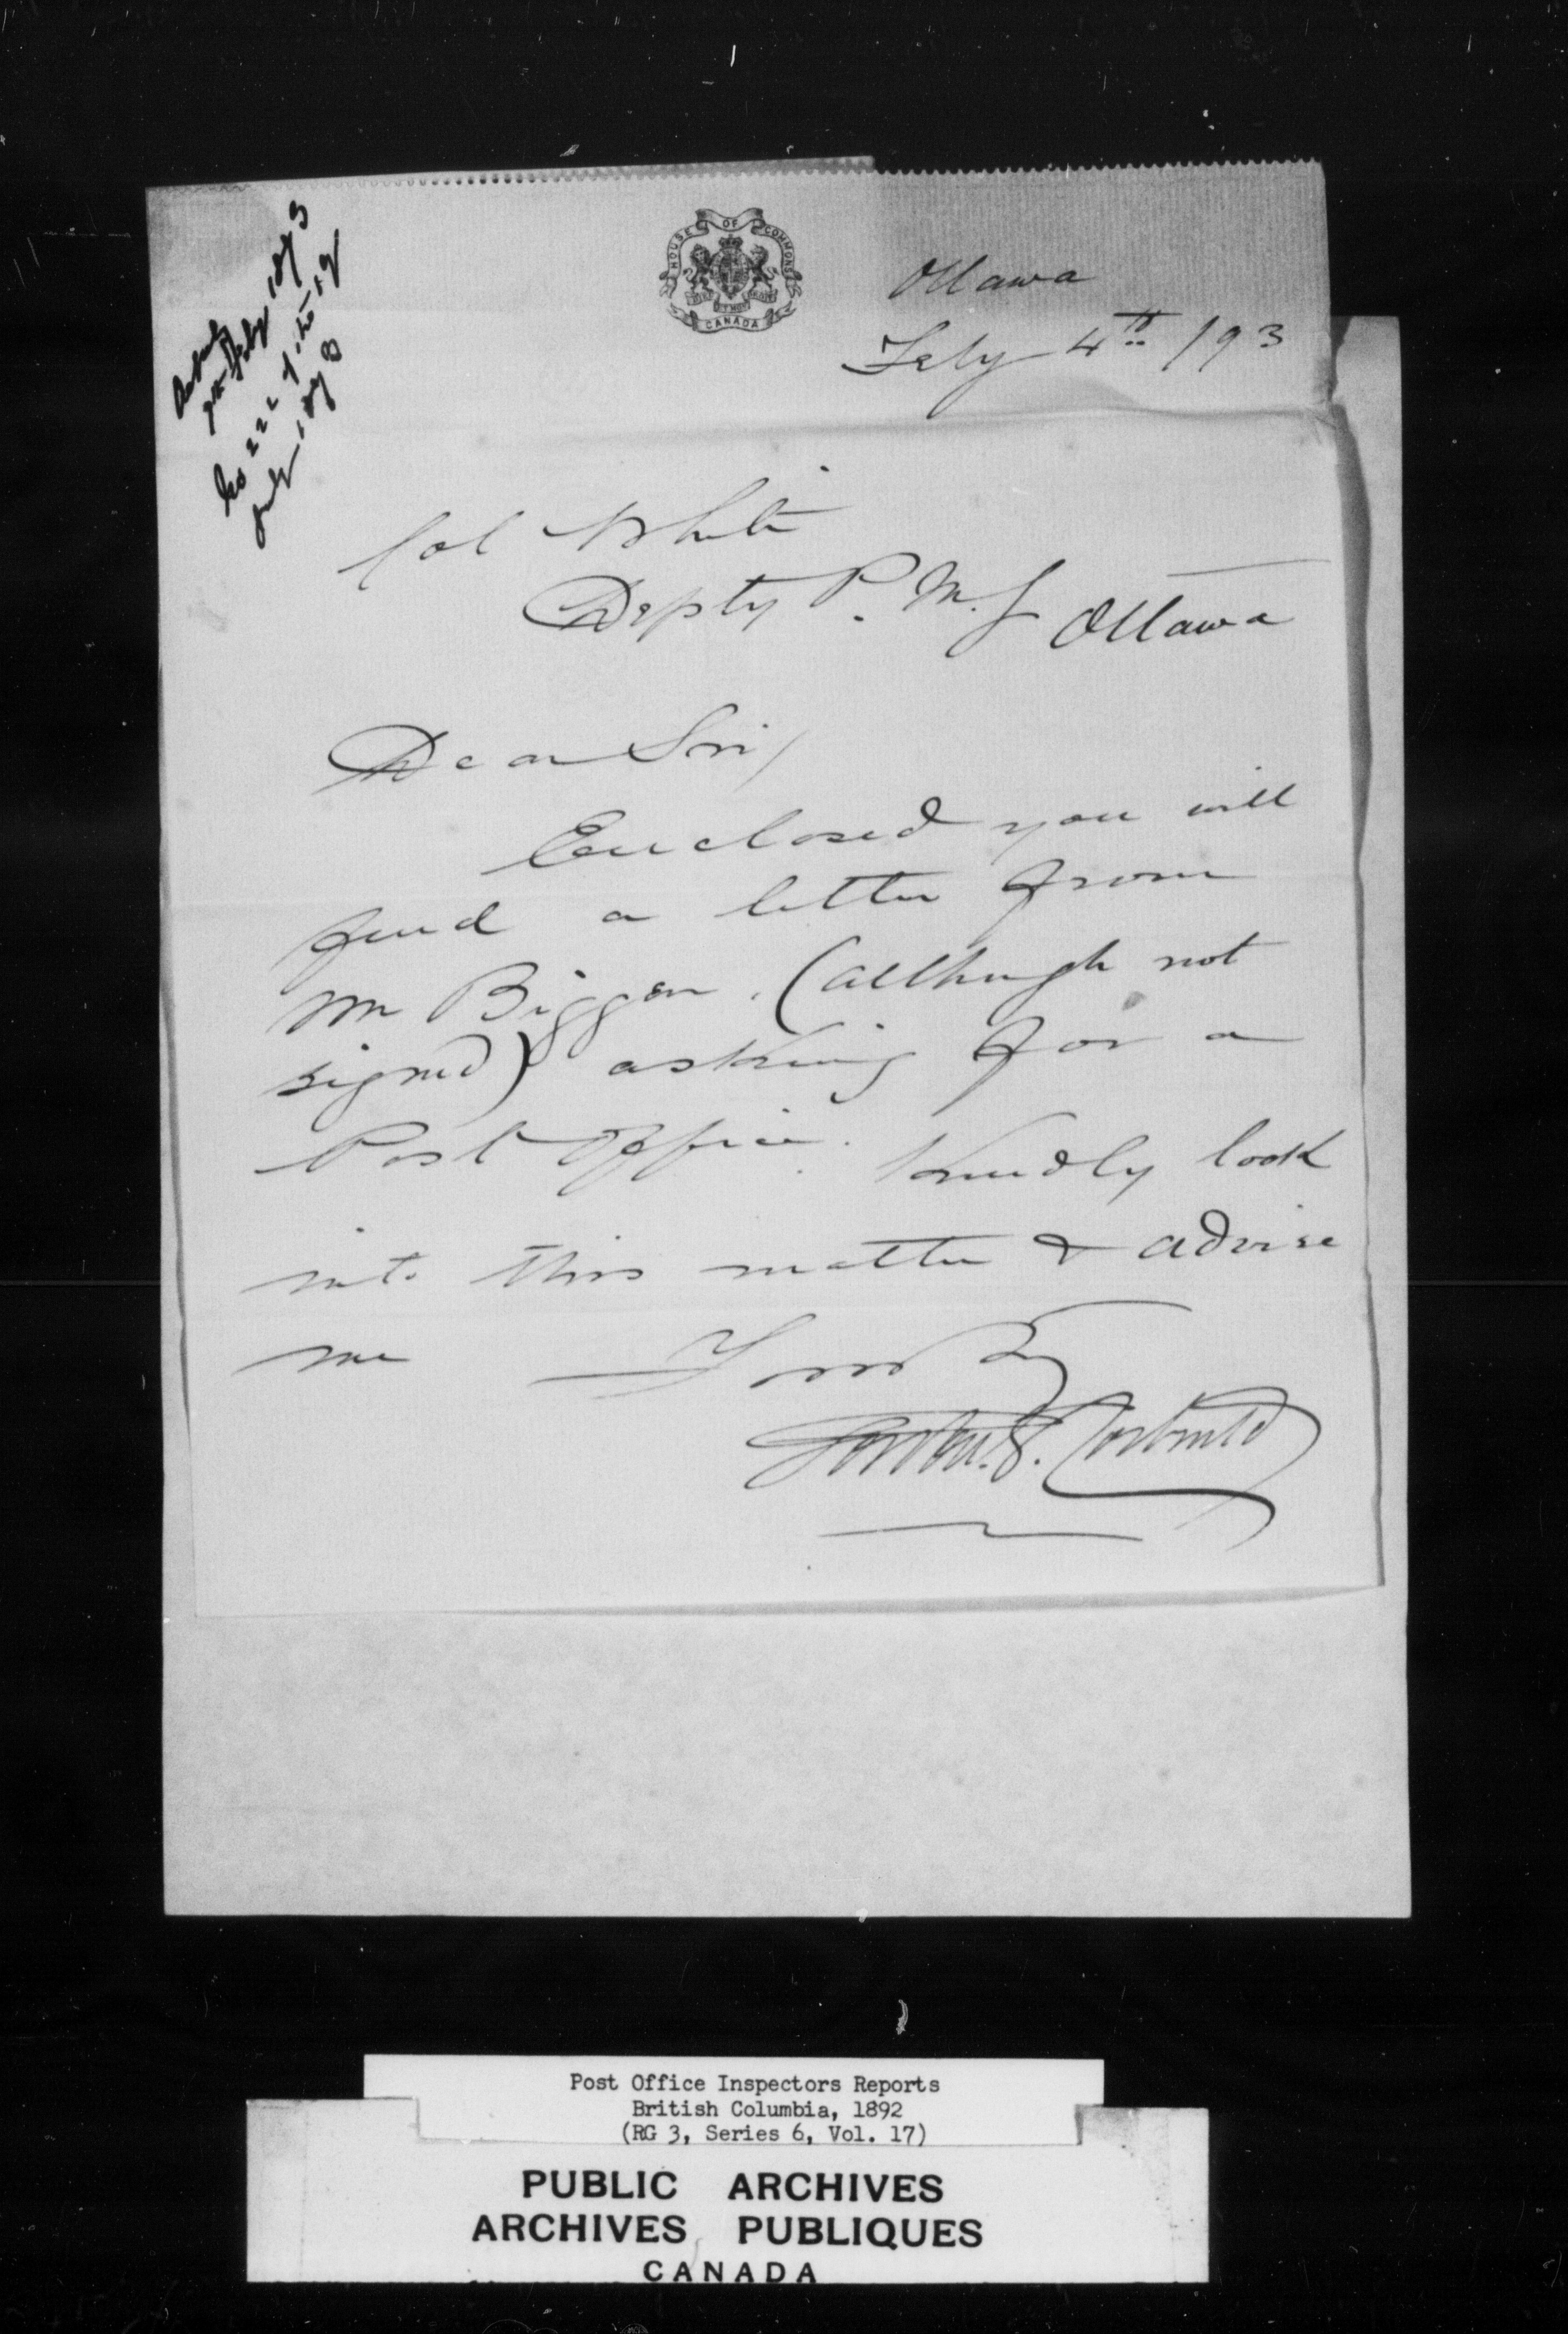 HOUSE OF COMMONS
CANADA
Ottawa
Feby 4th /93
Col White
Depty P. M. G Ottawa
Dear Sir/
Enclosed you will
find a letter from
Mr Biggar. (although not
signed) asking for a
Post Office. Kindly look
into this matter & advise
me Yours Ty
Gordon E. Corbould
Post Office Inspectors Reports
British Columbia, 1892
(RG 3, Series 6, Vol. 17)
PUBLIC ARCHIVES
ARCHIVES PUBLIQUES
CANADA